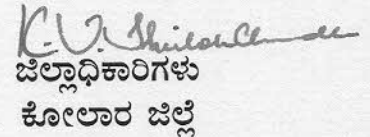 ಜಿಲ್ಲಾಧಿಕಾರಿಗಳು
ಕೋಲಾರ ಜಿಲ್ಲೆ